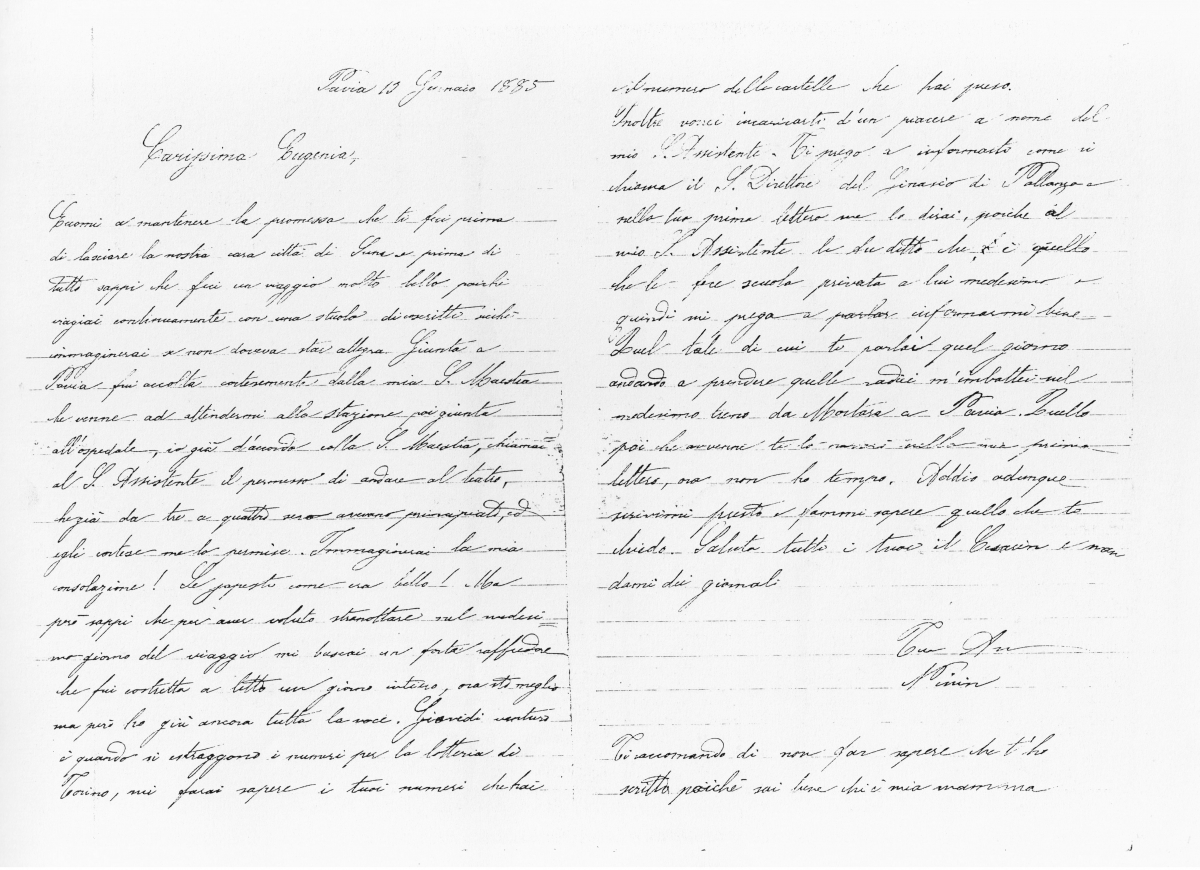 Pavia 13 Gennaio 1885
Carissima Eugenia,
Eccomi a mantenere la promessa che ti feci prima
di lasciare la nostra cara città di Suna e, prima di
tutto sappi che feci un viaggio molto bello, poichè
viagiai continuamente con uno stuolo di coscritti sichè
immaginerai se non doveva star allegra. Giunta a
Pavia fui accolta cortesemente dalla mia S. Maestra
che venne ad attendermi alla stazione poi giunta
all'ospedale, io già d'accordo colla S. Maestra, chiamai
al S. Assistente il permesso di andare al teatro,
chezià da tre a quattro sere avevano principiato, ed
egli cortese me lo permise. Immaginerai la mia
consolazione! Se sapesti come era bello! Ma
però sappi che per aver voluto stranottare nel medesi=
mo giorno del viaggio mi buscai un forte raffredore
che fui costretta a letto un giorno intiero, ora sto meglio
ma però ho giù ancora tutta la voce. Giovedì venturo
è quando si estraggono i numeri per la lotteria di
Torino, mi farai sapere i tuoi numeri che hai
il numero delle cartelle che hai preso.
Inoltre vorrei incaricarti d'un piacere a nome del
mio S. Assistente. Ti prego a informarti come si
chiama il S. Direttore del Ginasio di Pallanza e
nella tua prima lettera me lo dirai, poiche al
mio S. Assistente le fu detto che è quello
che le fece scuola privata a lui medesimo e
quindi mi prega a parlar informarmi bene
Quel tale di cui te parlai quel giorno
andando a prendere quelle radici m'imbattei nel
medesimo treno da Mortara a Pavia. Quello
poi che avvenne te lo narrerò nella mia prima
lettera, ora non ho tempo. Addio adunque
scrivimi presto e fammi sapere quello che te
chiedo. Saluta tutti i tuoi il Cesarin e man
dami dei giornali
Tua
Ninin
Ti raccomando di non far sapere che t'ho
scritto poichè sai bene chi è mia mamma